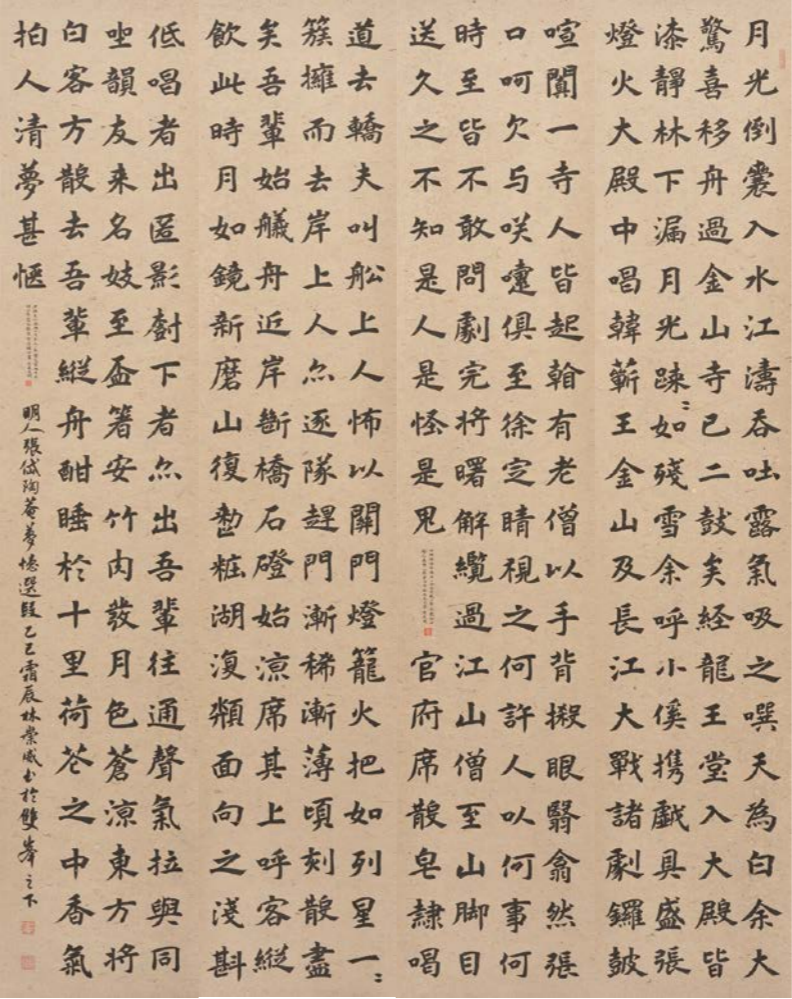 月光倒囊入水江濤吞吐露氣吸之噀天為白余大
驚喜移舟過金山寺已二鼓矣経龍王堂入大殿皆
漆靜林下漏月光踈〻如殘雪余呼小傒携戯具盛張
燈火大殿中唱韓蘄王金山及長江大戰諸劇鑼皷
喧闐一寺人皆起翰有老僧以手背摋眼翳翕然張
口呵欠与咲嚏俱至徐定睛視之何許人以何事何
時至皆不敢問劇完将曙解纜過江山僧至山脚目
送久之不知是人是怪是鬼
官府席散皂隷唱
道去轎夫叫舩上人怖以關門燈籠火把如列星一〻
簇擁而去岸上人亦逐隊趕門漸稀漸薄頃刻散盡
矣吾輩始艤舟近岸斷橋石磴始涼席其上呼客縱
飲此時月如鏡新磨山復整粧湖復頮面向之淺斟
低唱者出匿影樹下者亦出吾輩往通聲氣拉與同
坐韻友来名妓至盃箸安竹肉發月色蒼涼東方将
白客方散去吾輩縱舟酣睡於十里荷花之中香氣
拍人清夢甚愜
明人張岱陶菴夢憶選段乙巳霜辰林崇書於雙峯之下